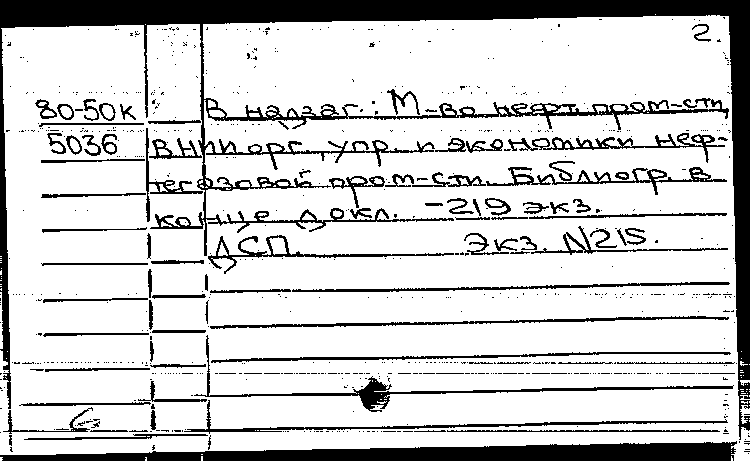 2.
80-50к В надзаг.: М-во нефт. пром-сти,
5036 ВНИИ орг., упр. и экономики неф-
тегазовой пром-сти. Библиогр. в
конце докл. -219 экз.
ДСП. Экз. N215.
6